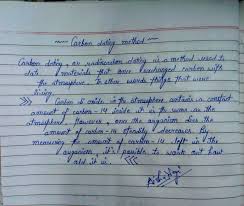 ~~ Carbon dating method ~~
Carbon dating, or radiocarbon dating is a method used to
date materials that once exchanged carbon with
the atmosphere. In other words things that were
living.
Carbon di oxide in the atmosphere contains a constant
amount of carbon-14 inside it is the same as the
atmosphere. However, once the organism dies the
amount of carbon-14 steadily decreases. By
measuring the amount of carbon-14 left in the
organism, it's possible to work out how
old it is.